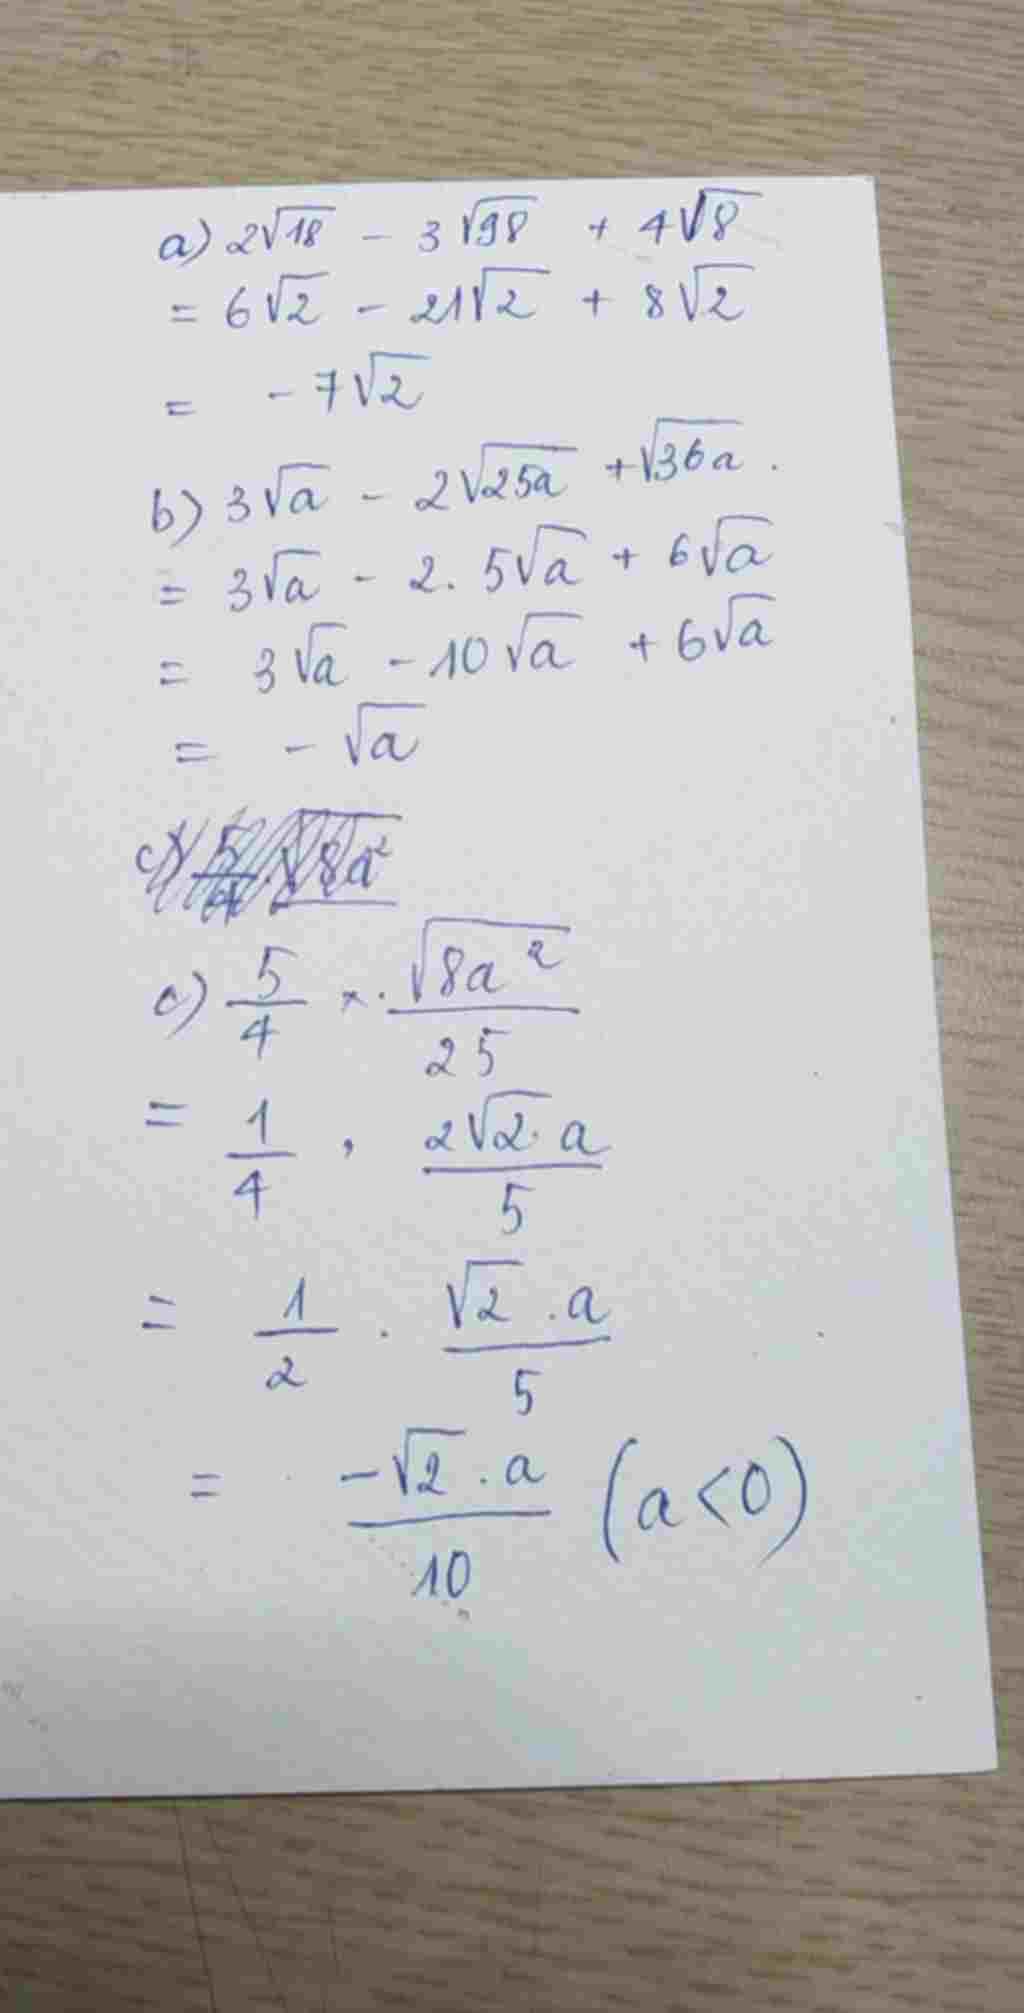 a) 2√18 - 3√98 + 4√8
= 6√2 - 21√2 + 8√2
= -7√2
b) 3√a - 2√25a + √36a.
= 3√a - 2. 5√a + 6√a
= 3√a - 10√a + 6√a
= -√a
c) 5/4 . √8a²
c) 5/4 × . √8a²/25
= 1/4 . 2√2.a/5
= 1/2 . √2.a/5
= -√2.a/10 (a<0)